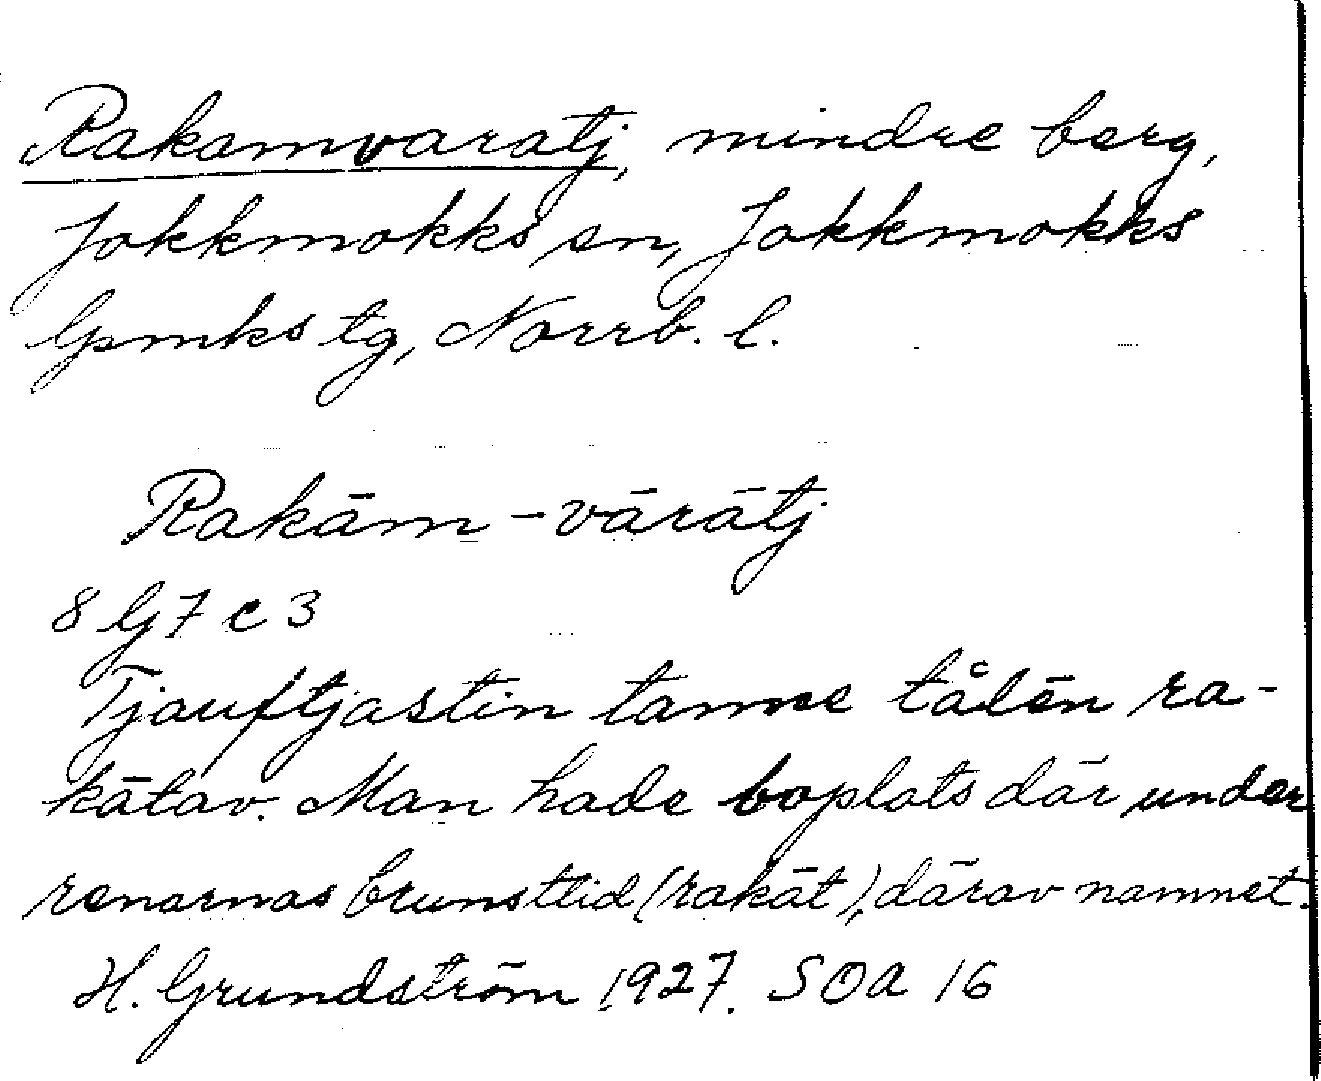 Rakamvaratj, mindre berg,
Jokkmokks sn, Jokkmokks
lpmks tg, Norrb. l.
Rakām-vārātj
8 lj 7 c 3
Tjauftjastin tanne tålēn ra-
kātav. Man hade boplats där under
renarnas brunsttid (rakāt), därav namnet.
H. Grundström 1927. SOA 16